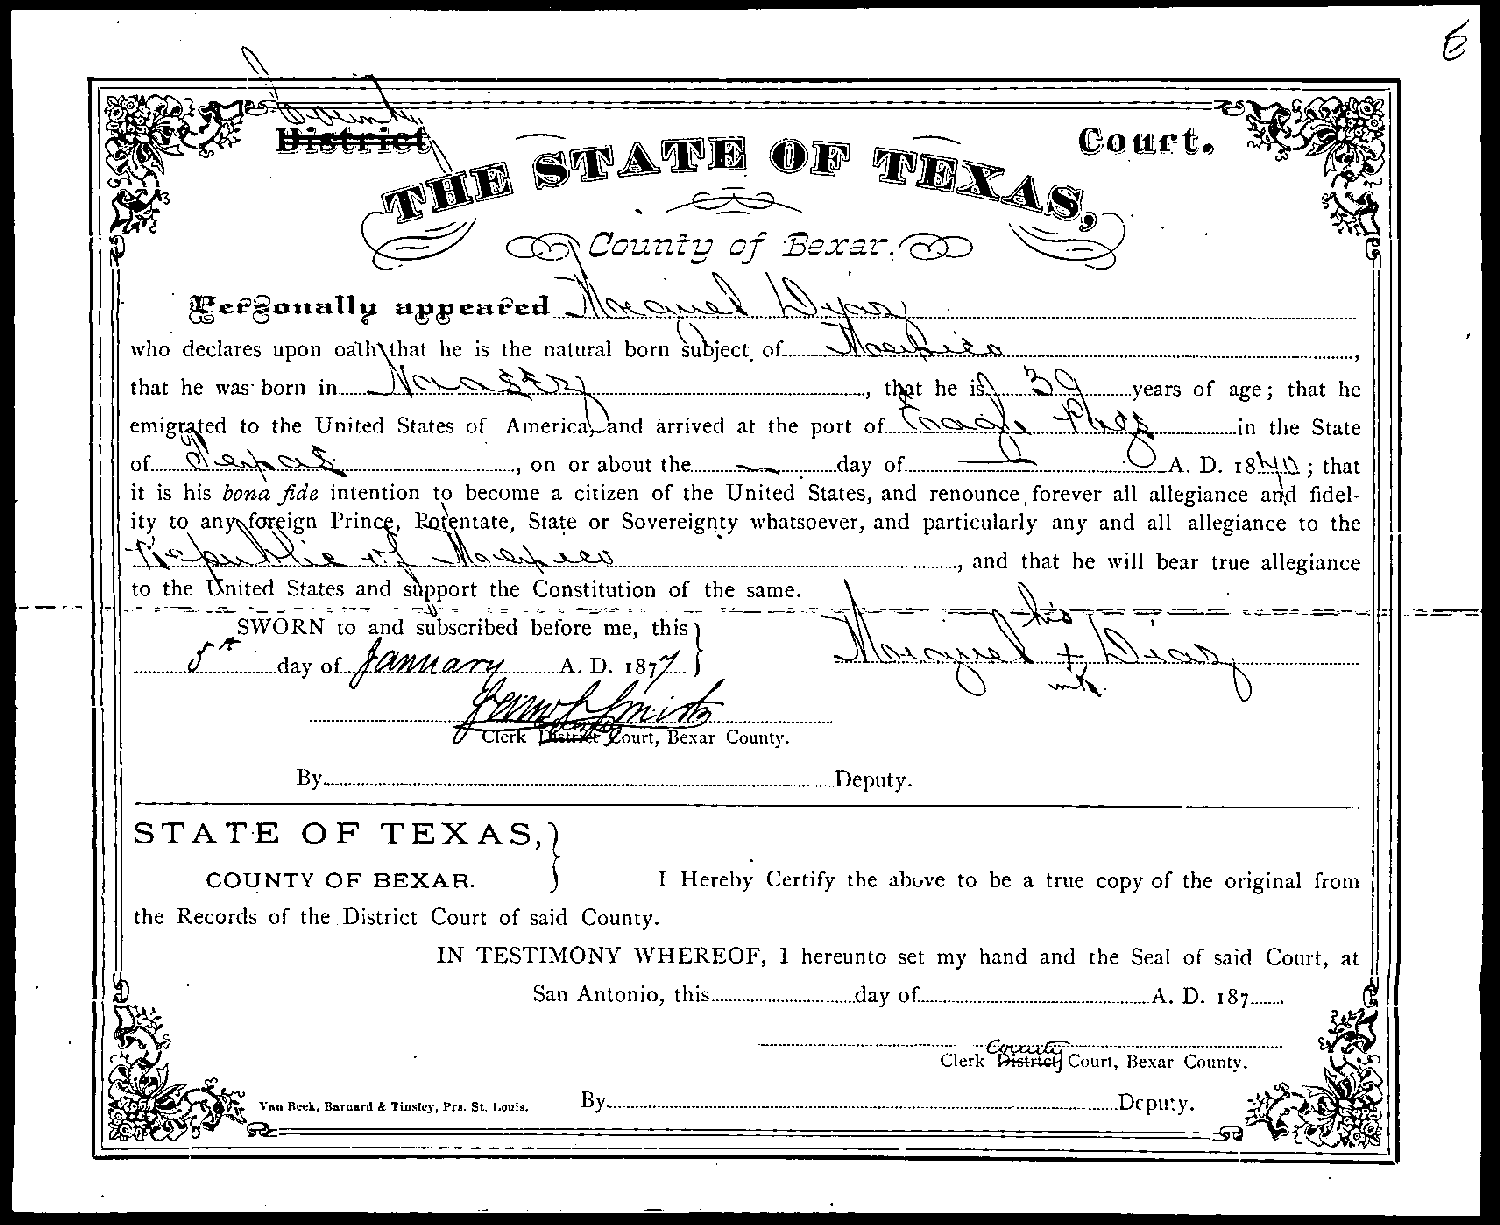 E
County
District Court.
THE STATE OF TEXAS,
County of Bexar.
Personally appeared Miguel Diaz
who declares upon oath that he is the natural born subject of Mexico,
that he was born in, that he is 39 years of age; that he
emigrated to the United States of America, and arrived at the port of Eagle Pass in the State
of Texas, on or about the — day of — A. D. 18; that
it is his bona fide intention to become a citizen of the United States, and renounce forever all allegiance and fidel-
ity to any foreign Prince, Potentate, State or Sovereignty whatsoever, and particularly any and all allegiance to the
Republic of Mexico, and that he will bear true allegiance
to the United States and support the Constitution of the same.
SWORN to and subscribed before me, this
5th day of January A. D. 1877
his
Diaz
mk
Smith
Clerk District Court, Bexar County.
By Deputy.
STATE OF TEXAS,
COUNTY OF BEXAR.
I Hereby Certify the above to be a true copy of the original from
the Records of the District Court of said County.
IN TESTIMONY WHEREOF, I hereunto set my hand and the Seal of said Court, at
San Antonio, this day of A. D. 187
County
Clerk District Court, Bexar County.
By Deputy.
Van Beek, Barnard & Tinsley, Prs. St. Louis.